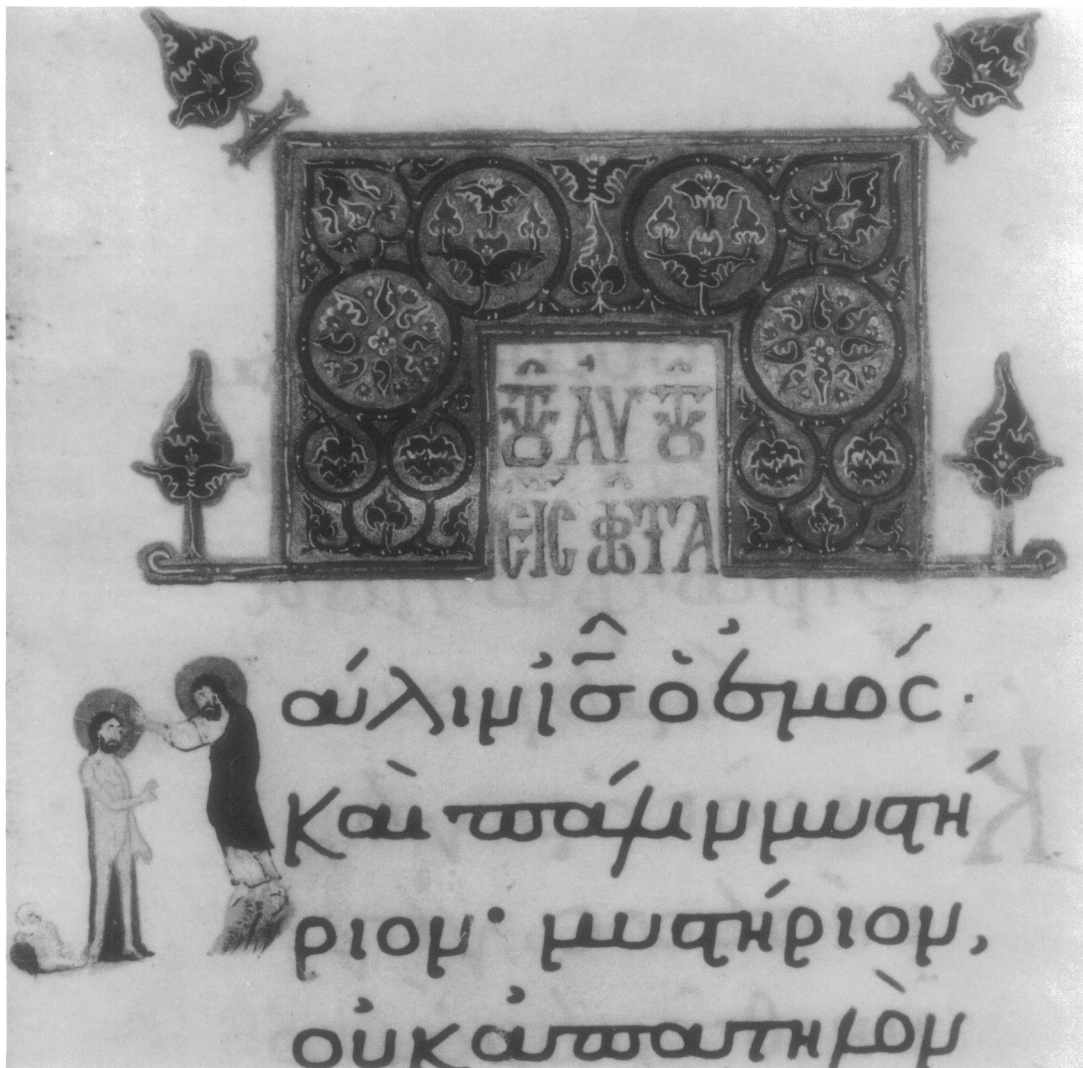 ΤȢ͂ ΑΥΤȢ͂
ΕΙC ΦΩ͂ΤΑ
άλιν ἰ̅ς̅ ὁ ἐμός·
Καὶ πάλιν μυστή
ριον· μυστήριον,
οὐκ ἀπατηλὸν